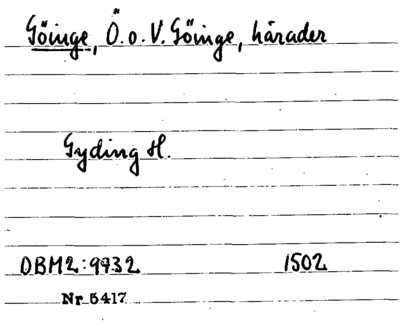 Göinge, Ö. o. V. Göinge, härader
Gyding H.
DBM2:9932 1502
Nr 5417